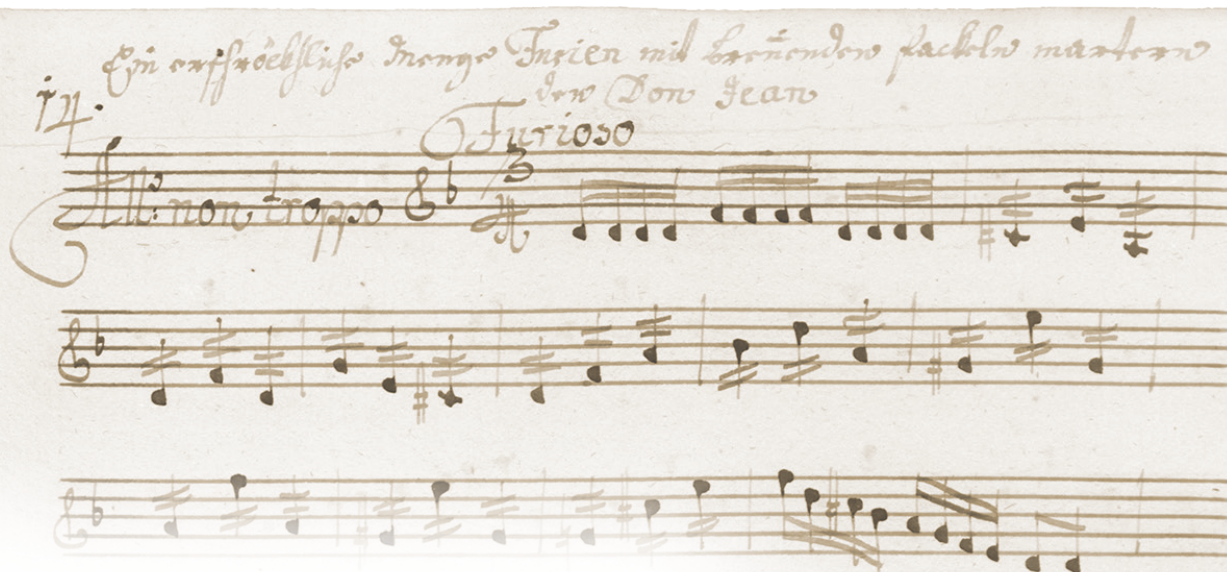 Ein erschröckhliche Menge Furien mit breñenden fackeln martern
den Don Jean
14.
Furioso
All: non troppo
3
4